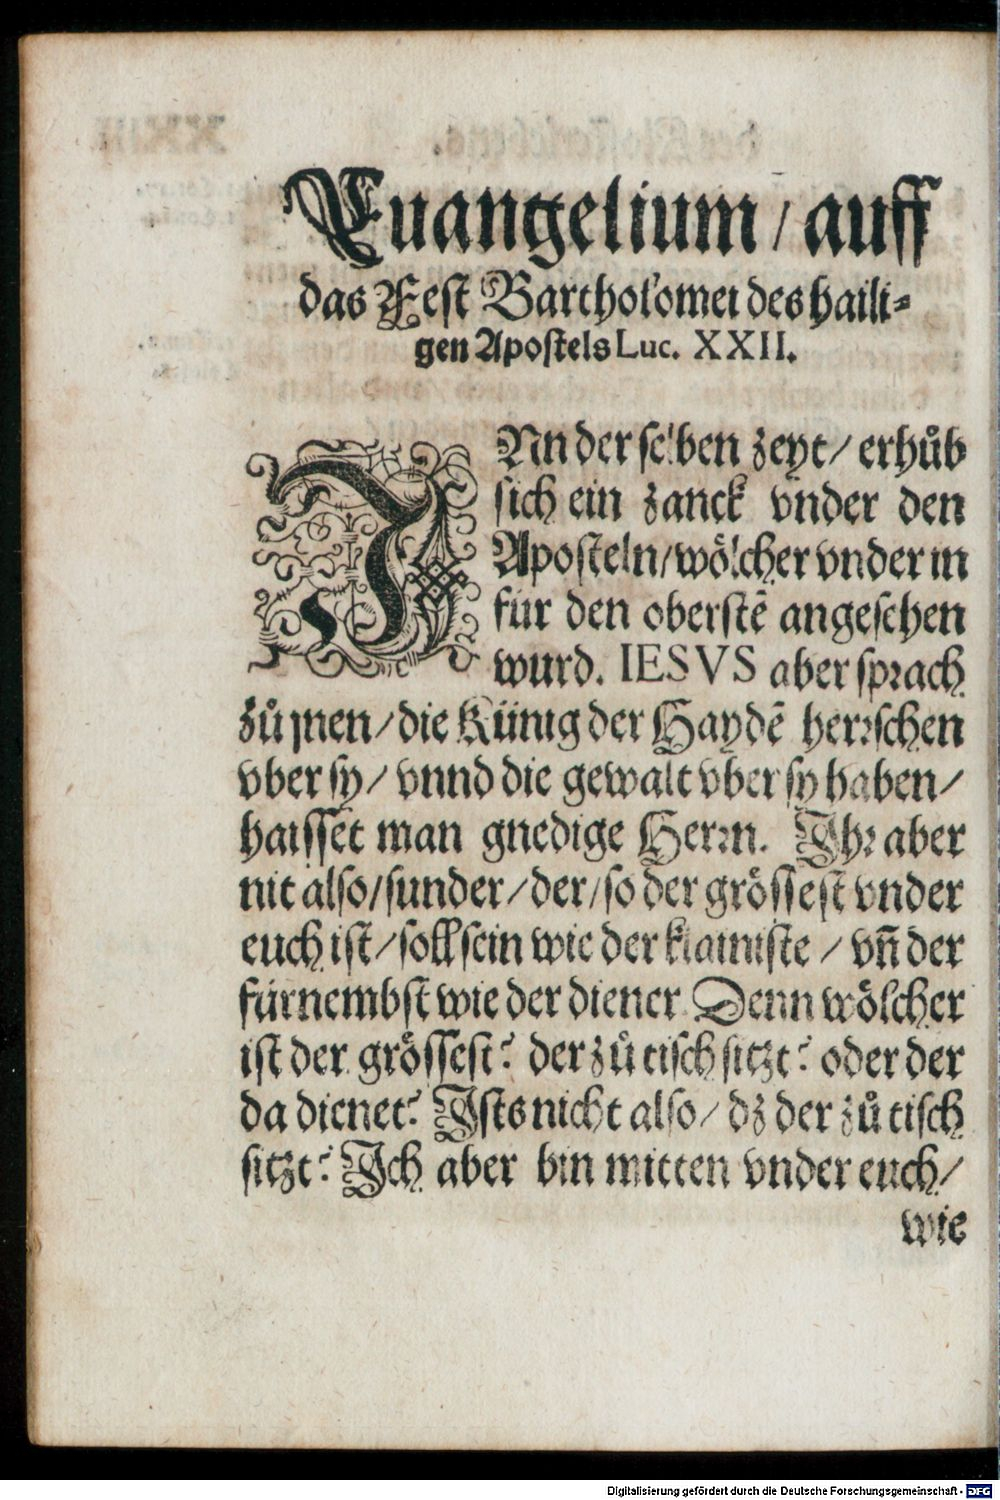 Euangelium / auff
das Fest Bartholomei des haili⸗
gen Apostels Luc. XXII.
INn der selben zeyt / erhůb
sich ein zanck vnder den
Aposteln / wölcher vnder in
für den oberstē angesehen
wurd. IESVS aber sprach
zů jnen / die Künig der Haydē herrschen
vber sy / vnnd die gewalt vber sy haben /
haisset man gnedige Herrn. Ihr aber
nit also / sunder / der / so der grössest vnder
euch ist / soll sein wie der klainiste / vn̄ der
fürnembst wie der diener. Denn wölcher
ist der grössest? der zů tisch sitzt? oder der
da dienet? Ists nicht also / dz der zů tisch
sitzt? Ich aber bin mitten vnder euch /
wie
Digitalisierung gefördert durch die Deutsche Forschungsgemeinschaft - DFG